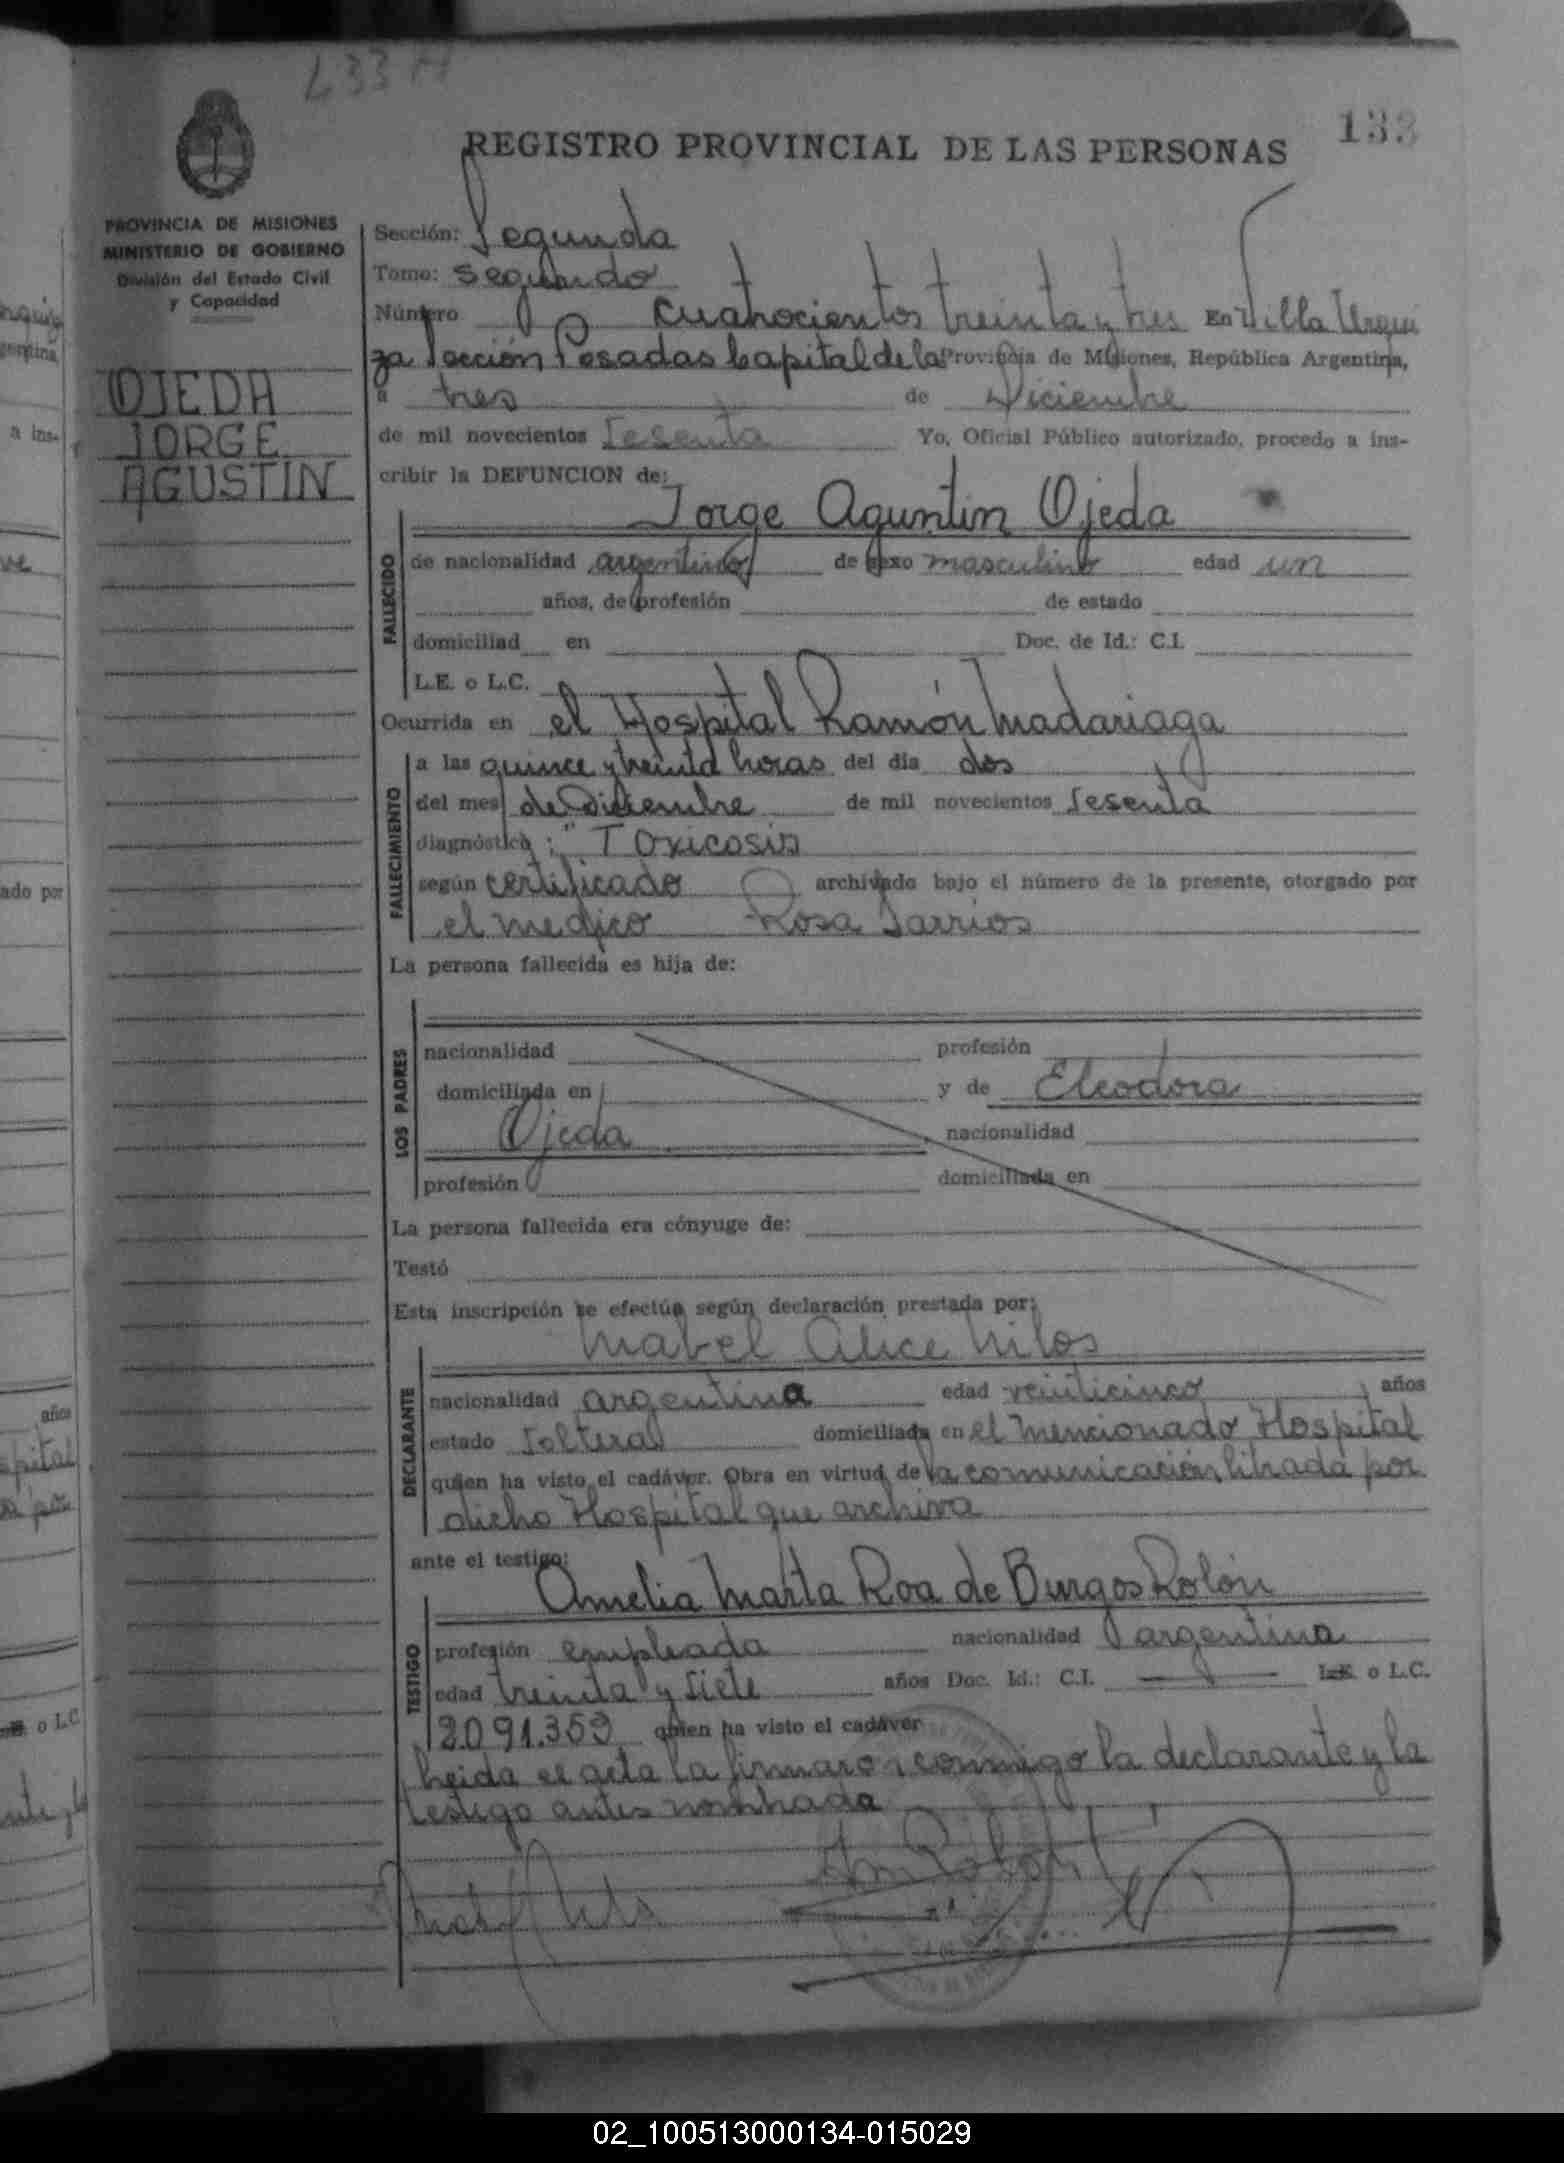 433 A
133
REGISTRO PROVINCIAL DE LAS PERSONAS
PROVINCIA DE MISIONES
MINISTERIO DE GOBIERNO
División del Estado Civil
y Capacidad
OJEDA
JORGE
AGUSTIN
Sección: Segunda
Tomo: Segundo
Número cuatrocientos treinta y tres En Villa Urqui
za Sección Posadas Capital de la Provincia de Misiones, República Argentina,
a tres de Diciembre
de mil novecientos Sesenta Yo, Oficial Público autorizado, procedo a ins-
cribir la DEFUNCION de:
Jorge Aguntin Ojeda
FALLECIDO
de nacionalidad argentino de sexo masculino edad un
años, de profesión de estado
domiciliad en Doc. de Id.: C.I.
L.E. o L.C.
Ocurrida en el Hospital Ramón Madariaga
FALLECIMIENTO
a las quince y treinta horas del día dos
del mes de Diciembre de mil novecientos Sesenta
diagnóstico: "Toxicosis
según certificado archivado bajo el número de la presente, otorgado por
el medico Rosa Barrios
La persona fallecida es hija de:
LOS PADRES
nacionalidad profesión
domiciliada en y de Eleodora
Ojeda nacionalidad
profesión domiciliada en
La persona fallecida era cónyuge de:
Testó
Esta inscripción se efectúa según declaración prestada por:
Mabel Alice Milos
DECLARANTE
nacionalidad argentina edad veinticinco años
estado Soltera domiciliada en el mencionado Hospital
quien ha visto el cadáver. Obra en virtud de la comunicación librada por
dicho Hospital que archiva
ante el testigo:
Amelia Marta Roa de Burgos Rolón
TESTIGO
profesión empleada nacionalidad argentina
edad treinta y siete años Doc. Id.: C.I. L.E. o L.C.
2.091.359 quien ha visto el cadáver
leida el acta la firmaron conmigo la declarante y la
testigo antes nombrada
02_100513000134-015029